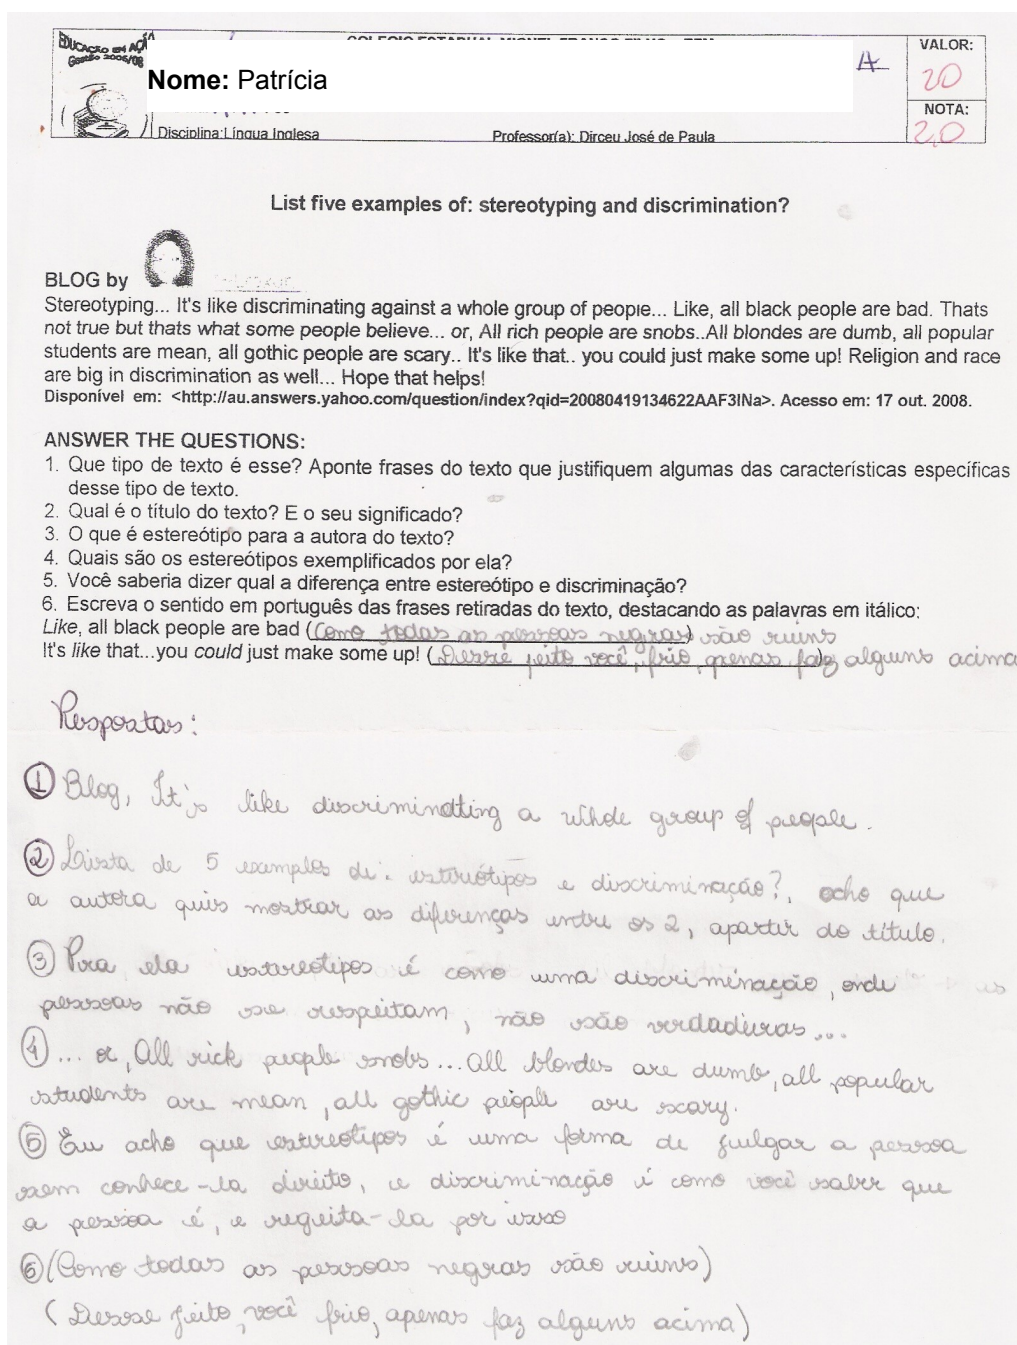 EDUCAÇÃO EM AÇÃ
Gestão 2005/08
Nome: Patrícia
A
VALOR:
20
NOTA:
2,0
Disciplina: Língua Inglesa Professor(a): Dirceu José de Paula
List five examples of: stereotyping and discrimination?
BLOG by
Stereotyping... It's like discriminating against a whole group of people... Like, all black people are bad. Thats
not true but thats what some people believe... or, All rich people are snobs..All blondes are dumb, all popular
students are mean, all gothic people are scary.. It's like that.. you could just make some up! Religion and race
are big in discrimination as well... Hope that helps!
Disponível em: <http://au.answers.yahoo.com/question/index?qid=20080419134622AAF3INa>. Acesso em: 17 out. 2008.
ANSWER THE QUESTIONS:
1. Que tipo de texto é esse? Aponte frases do texto que justifiquem algumas das características específicas
desse tipo de texto.
2. Qual é o título do texto? E o seu significado?
3. O que é estereótipo para a autora do texto?
4. Quais são os estereótipos exemplificados por ela?
5. Você saberia dizer qual a diferença entre estereótipo e discriminação?
6. Escreva o sentido em português das frases retiradas do texto, destacando as palavras em itálico:
Like, all black people are bad (Como todas as pessoas negras) são ruins
It's like that...you could just make some up! (Desse jeito você, frio, apenas faz alguns acima
Respostas:
1 Blog, It's like discrimindtting a whole group of people.
2 Lista de 5 exemplos de: esteriótipos e discriminação?, acho que
a autora quis mostrar as diferenças entre os 2, apartir do título.
3 Pra ela estareotipos é como uma discriminação, onde
pessoas não se respeitam, não são verdadeiras...
4 ... or, All rick people snobs... All blondes are dumb, all popular
students are mean, all gothic people are scary.
5 Eu acho que estareotipos é uma forma de julgar a pessoa
sem conhece-la direito, e discriminação é como você saber que
a pessoa é, e regeita-la por isso
6 (Como todas as pessoas negras são ruins)
(Desse jeito, você frio, apenas faz alguns acima)